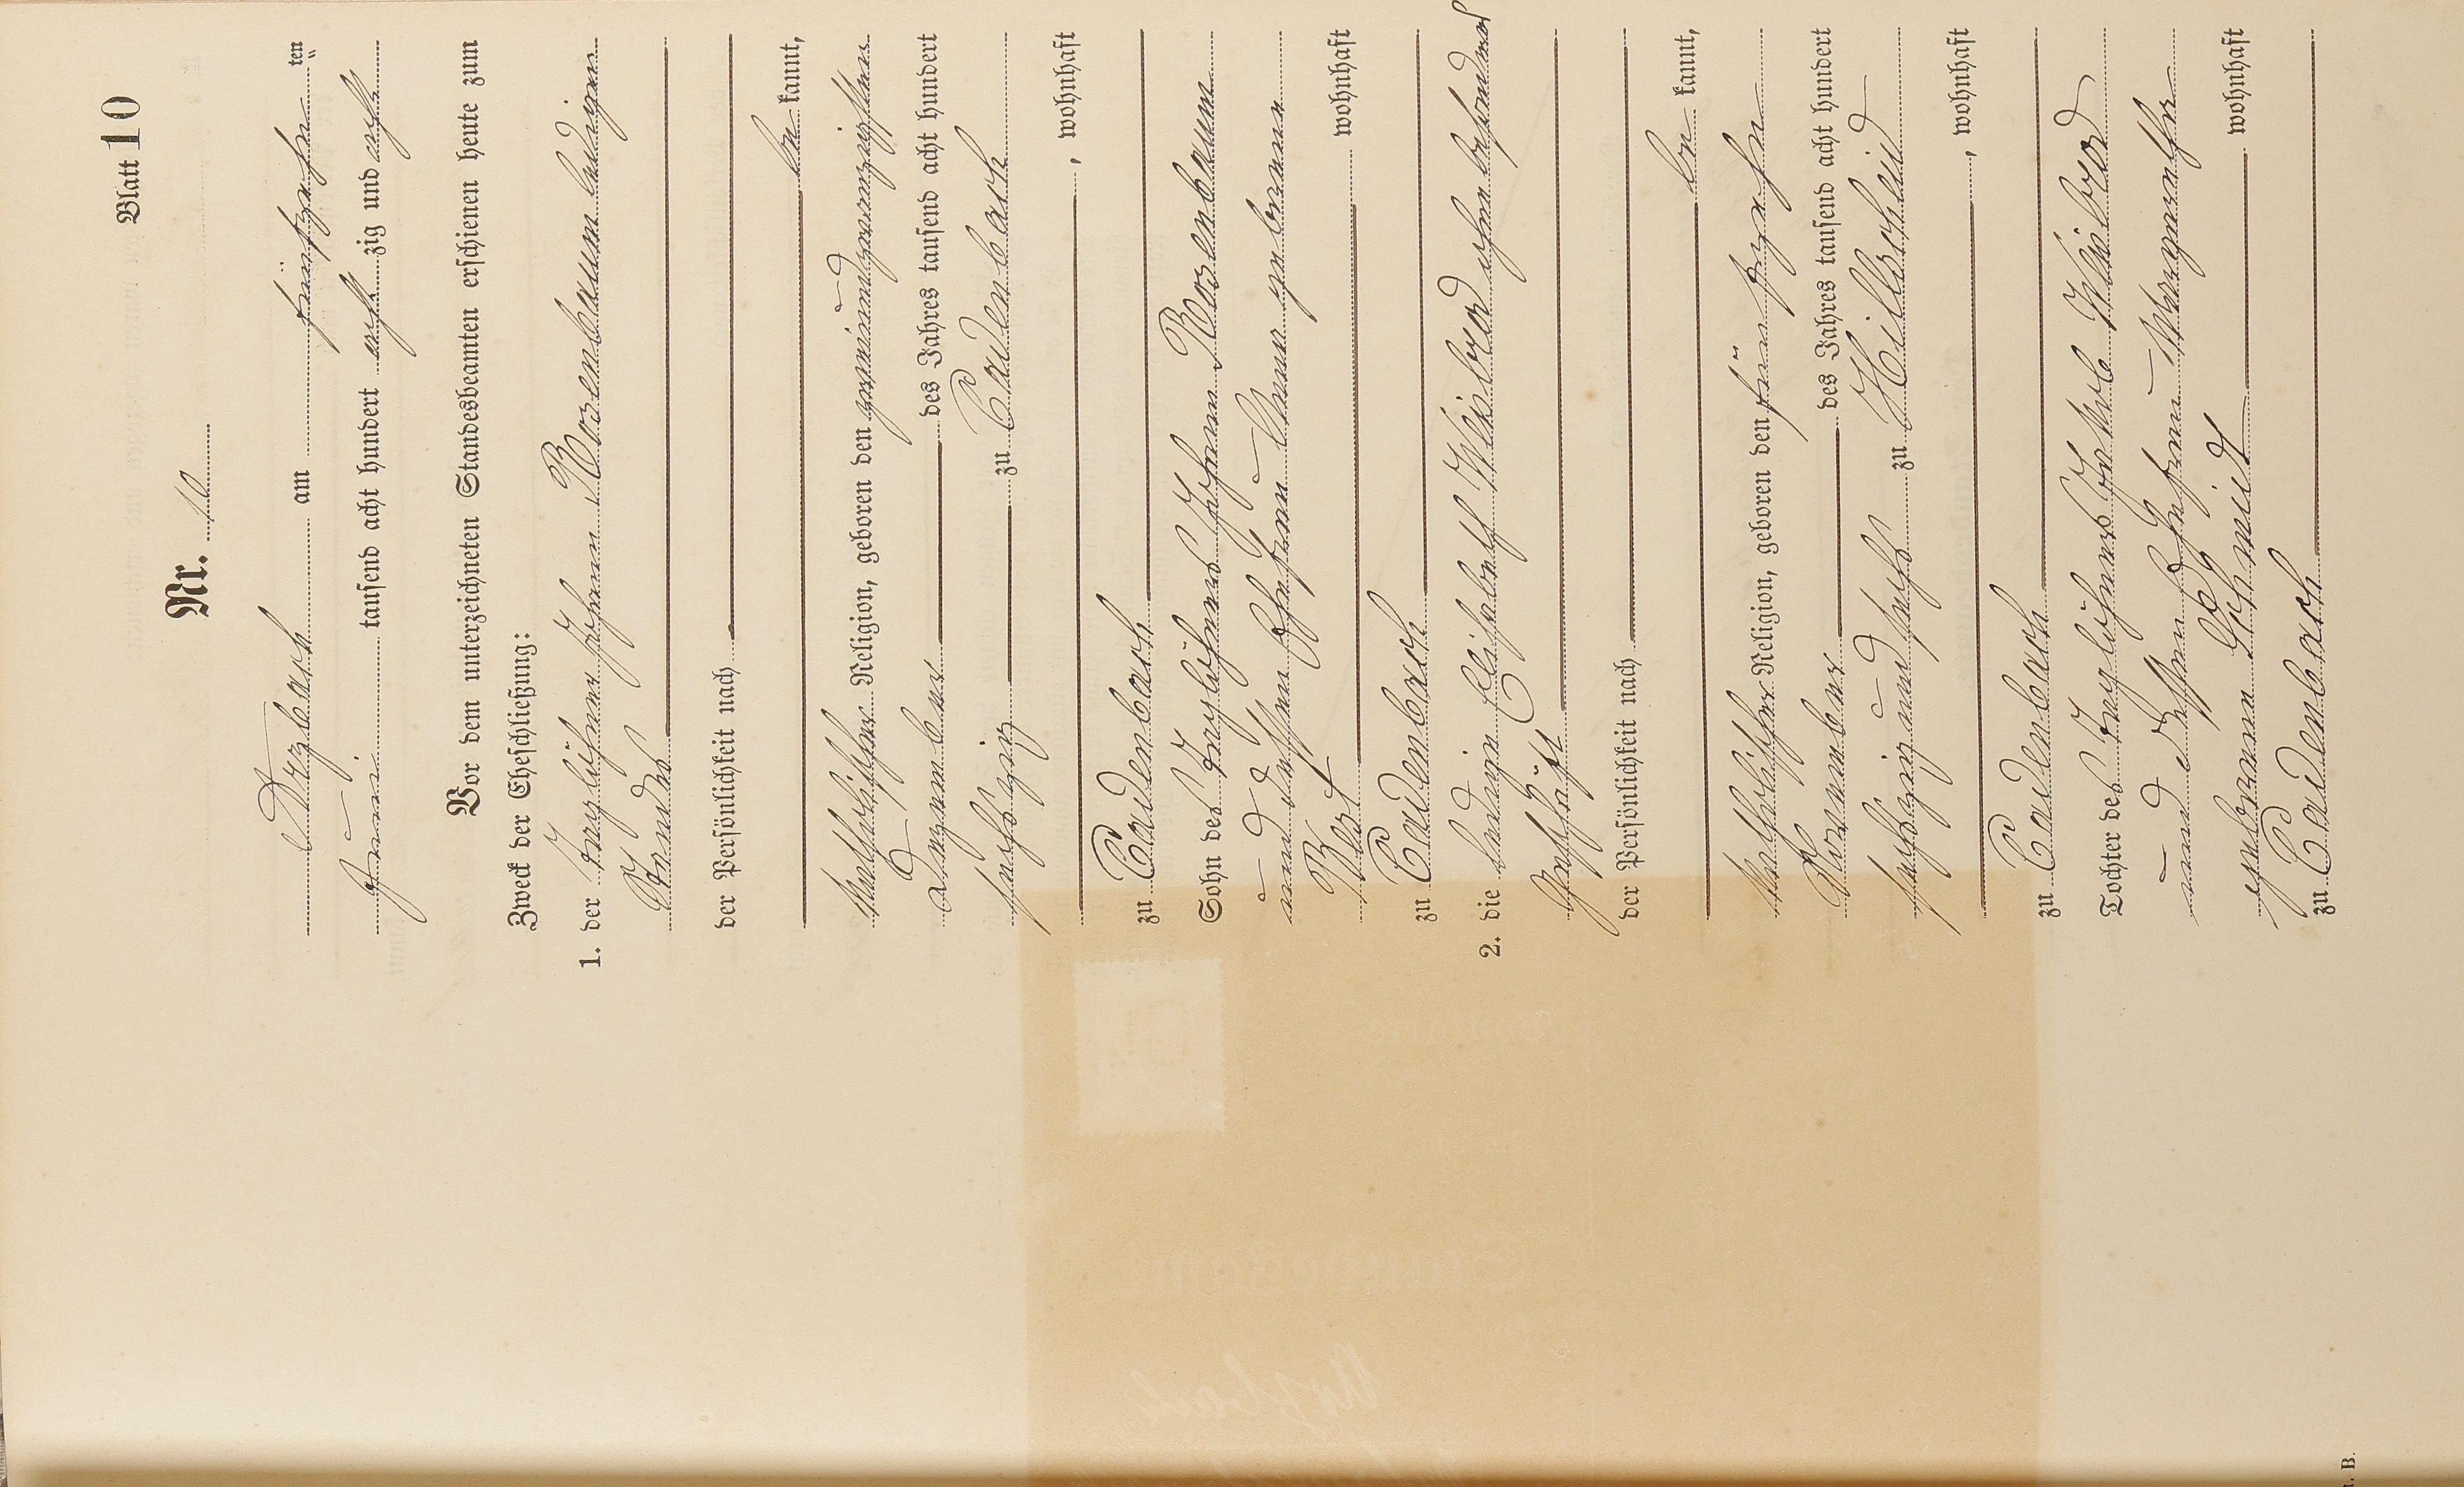 Blatt 10
Nr. 10
Arzbach am fünfzehn ten
Juni tausend acht hundert acht zig und acht
Vor dem unterzeichneten Standesbeamten erschienen heute zum
Zweck der Eheschließung:
1. der Taglöhner Johann Rosenbaum ledigen
Standes
der Persönlichkeit nach
be kannt,
katholischer Religion, geboren den zweiundzwanzigsten
Dezember des Jahres tausend acht hundert
sechszig zu Cadenbach
, wohnhaft
zu Cadenbach
Sohn des Taglöhners Johann Rosenbaum
und dessen Ehefrau Anna geborene
wohnhaft
zu Cadenbach
2. die ledige Elisabeth Weisbrod ohne besonderes
Geschäft
der Persönlichkeit nach
be kannt,
katholischer Religion, geboren den fünfzehn
November des Jahres tausend acht hundert
sechszig und sechs zu Hillscheid
, wohnhaft
zu Cadenbach
Tochter des Taglöhners Jakob Weisbrod
und dessen Ehefrau Margarethe
geborene Schmidt wohnhaft
zu Cadenbach
B.